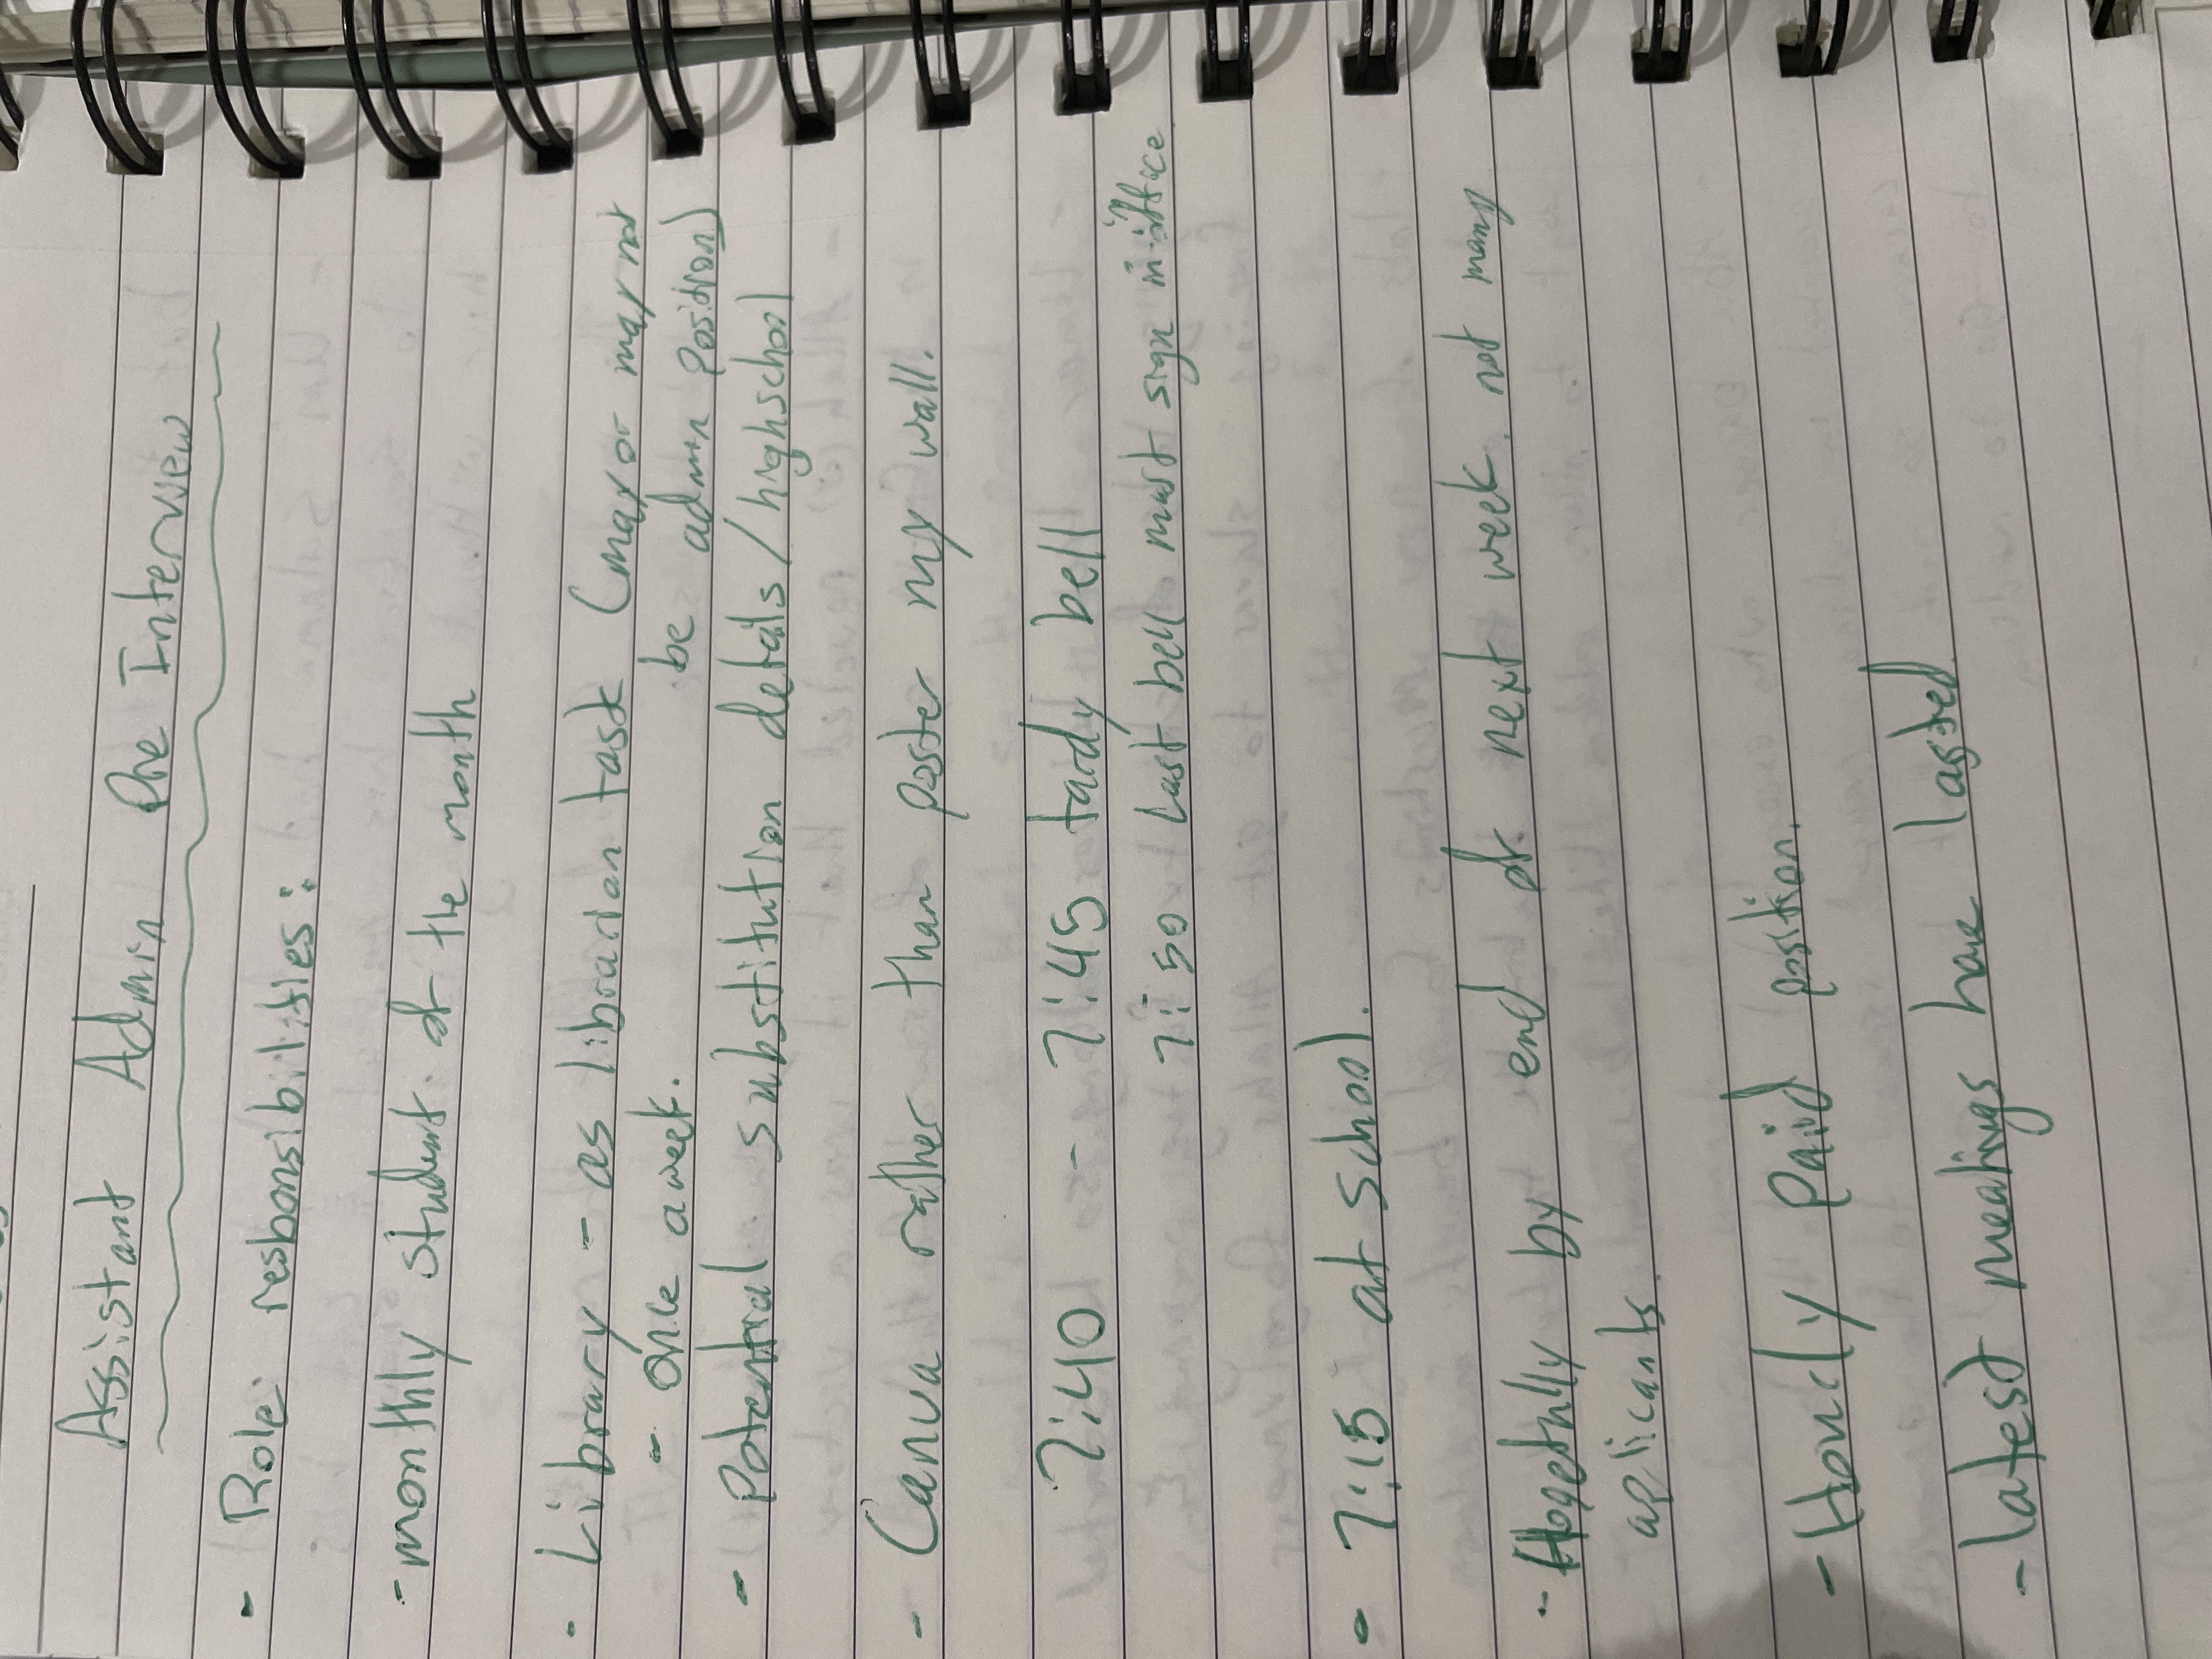 Assistant Admin Pre Interview
- Role responsibilities:
- monthly student of the month
- Library - as librarian task (may or may not
be admin position)
- one a week.
- Potential substitution details / highschool
- Canva rather than poster my wall.
7:40 - 7:45 tardy bell
7:50 Last bell must sign in office
- 7:15 at school.
- Hopefully by end of next week. not many
applicants.
- Hourly Paid position.
- latest meetings have lasted